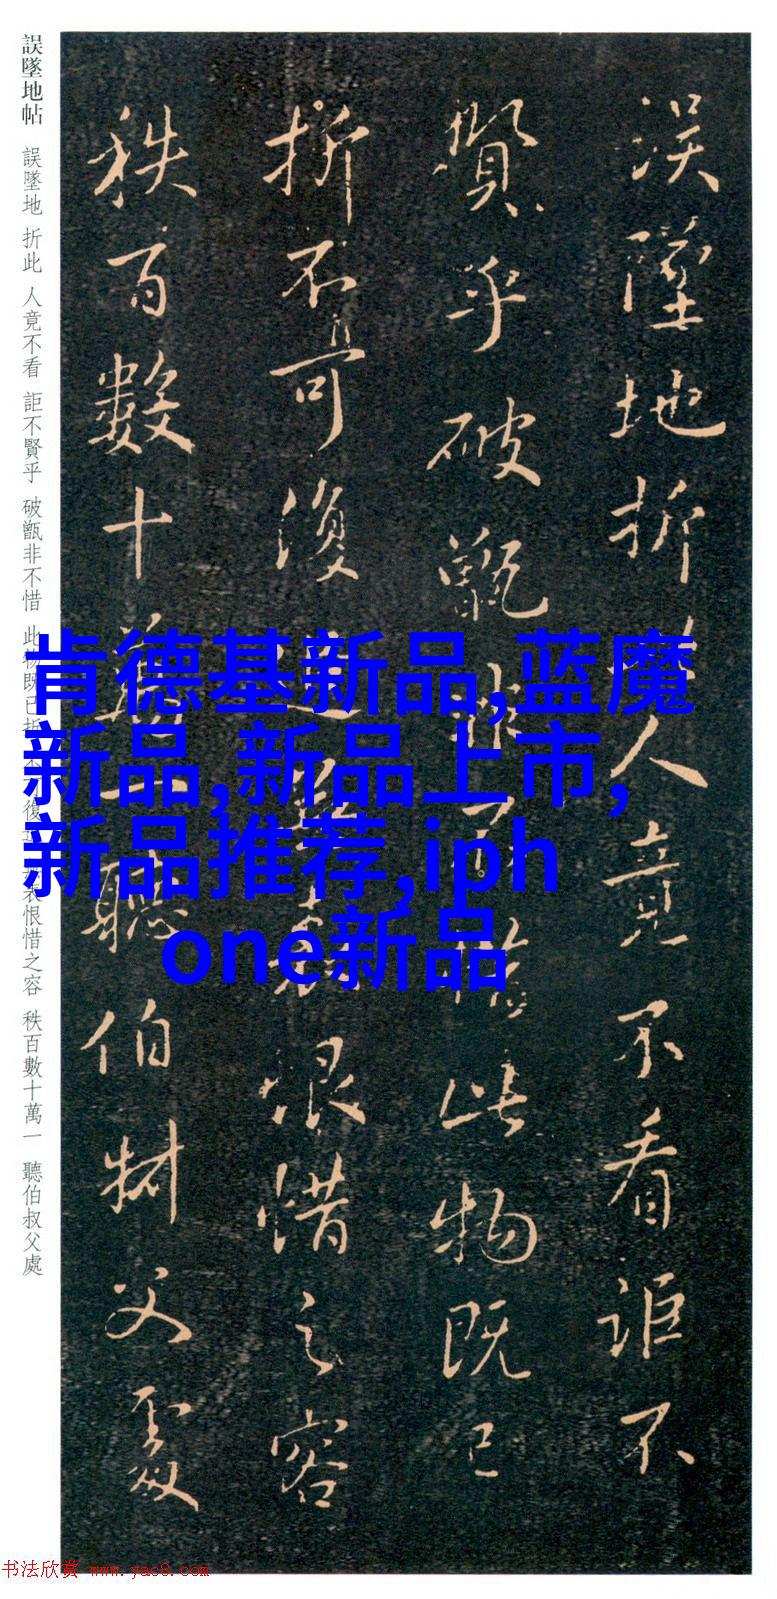 誤墜地折此人竟不看詎不
賢乎破甑非不惜此物既已
折不可復恨惜之容
秩百數十萬一聽伯叔父處
誤墜地帖 誤墜地 折此 人竟不看 詎不賢乎 破甑非不惜 此物既已折不可復 表恨惜之容 秩百數十萬一 聽伯叔父處
肯德基新品,蓝魔
新品,新品上市,
新品推荐,iph
one新品
书法欣赏 www.yac8.com